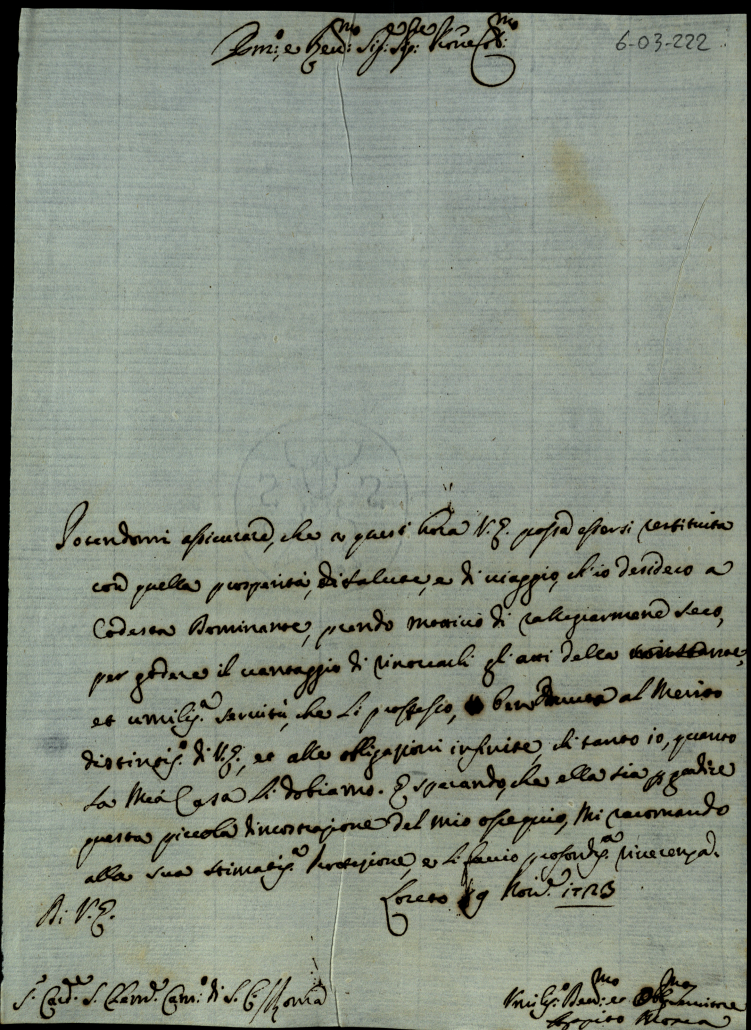 6-03-222
Potendomi assicurare, che a quest'hora V. E. possa essersi restituita
con quella prosperità, di salute, e di viaggio, ch'io desidero a
Codesta Dominante, prendo motivo di rallegrarmene seco,
per godere il vantaggio di rinovarli gli atti della
et umiliss.a servitù, che Li professo, ben dovuta al Merito
distintiss.o di V. E., et alle obligazioni infinite, ch tanto io, quanto
La Mia Casa Li dobiamo. E sperando, che ella sia p gradire
questa piccola dimostrazione del mio ossequio, Mi racomando
alla sua stimatiss.a Protezione, e Li faccio profondiss.a riverenza.
Loreto 9 Nov.e 1723
Di V. E.
S.r Card.e S. Clem.e Cam.o di S. C. / Roma
Umiliss.o Dev.mo et Obl.mo Servitore